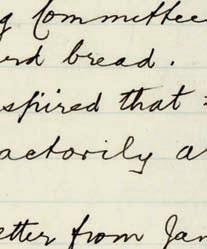 g Committee
rd bread.
spired that
actorily a
etter from Jan